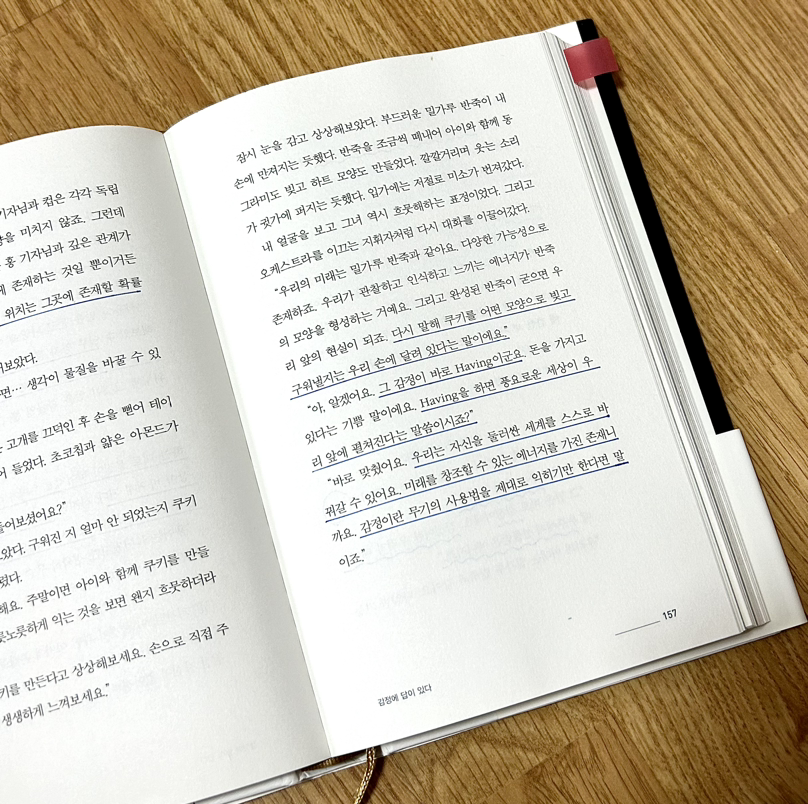 기자님과 컵은 각각 독립
을 미치지 않죠. 그런데
홍 기자님과 깊은 관계가
존재하는 것일 뿐이거든
위치는 그곳에 존재할 확률
보았다.
면… 생각이 물질을 바꿀 수 있
고개를 끄덕인 후 손을 뻗어 테이
들었다. 초코칩과 얇은 아몬드가
들어보셨어요?”
았다. 구워진 지 얼마 안 되었는지 쿠키
렸다.
해요. 주말이면 아이와 함께 쿠키를 만들
릇노릇하게 익는 것을 보면 왠지 흐뭇하더라
키를 만든다고 상상해보세요. 손으로 직접 주
생생하게 느껴보세요.”
잠시 눈을 감고 상상해보았다. 부드러운 밀가루 반죽이 내
손에 만져지는 듯했다. 반죽을 조금씩 떼내어 아이와 함께 동
그라미도 빚고 하트 모양도 만들었다. 깔깔거리며 웃는 소리
가 귓가에 퍼지는 듯했다. 입가에는 저절로 미소가 번져갔다.
내 얼굴을 보고 그녀 역시 흐뭇해하는 표정이었다. 그리고
오케스트라를 이끄는 지휘자처럼 다시 대화를 이끌어갔다.
“우리의 미래는 밀가루 반죽과 같아요. 다양한 가능성으로
존재하죠. 우리가 관찰하고 인식하고 느끼는 에너지가 반죽
의 모양을 형성하는 거예요. 그리고 완성된 반죽이 굳으면 우
리 앞의 현실이 되죠. 다시 말해 쿠키를 어떤 모양으로 빚고
구워낼지는 우리 손에 달려 있다는 말이에요.”
“아, 알겠어요. 그 감정이 바로 Having이군요. 돈을 가지고
있다는 기쁨 말이에요. Having을 하면 풍요로운 세상이 우
리 앞에 펼쳐진다는 말씀이시죠?”
“바로 맞췄어요. 우리는 자신을 둘러싼 세계를 스스로 바
꿔갈 수 있어요. 미래를 창조할 수 있는 에너지를 가진 존재니
까요. 감정이란 무기의 사용법을 제대로 익히기만 한다면 말
이죠.”
157
감정에 답이 있다